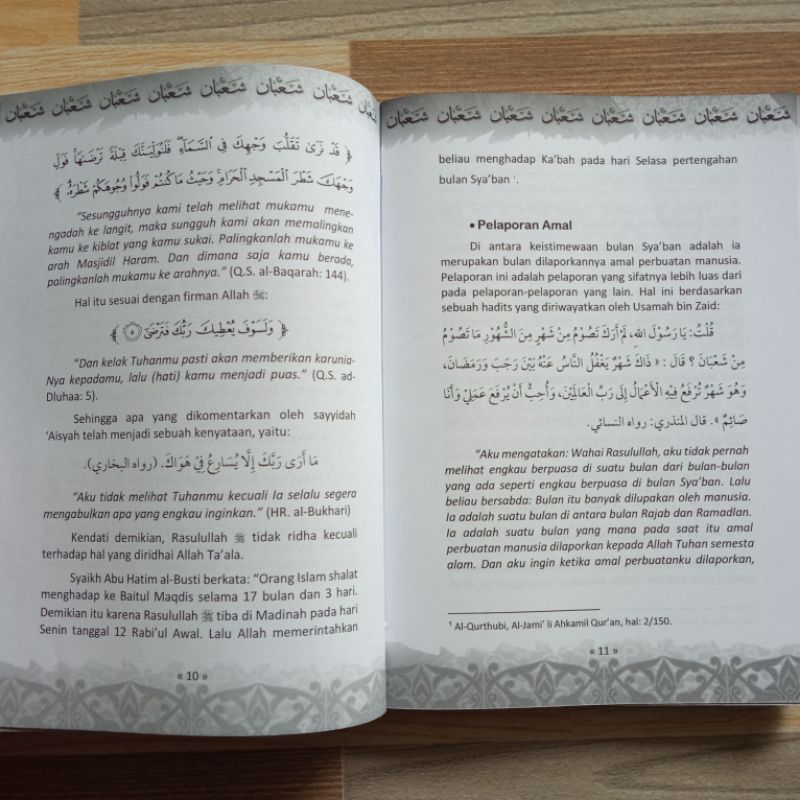 شَعْبَان شَعْبَان شَعْبَان شَعْبَان شَعْبَان شَعْبَان شَعْبَان شَعْبَان
﴿ قَدْ نَرَىٰ تَقَلُّبَ وَجْهِكَ فِي السَّمَاءِ ۖ فَلَنُوَلِّيَنَّكَ قِبْلَةً تَرْضَىٰهَا ۚ فَوَلِّ
وَجْهَكَ شَطْرَ الْمَسْجِدِ الْحَرَامِ ۚ وَحَيْثُ مَا كُنتُمْ فَوَلُّوا وُجُوهَكُمْ شَطْرَهُ ۗ ﴾
"Sesungguhnya kami telah melihat mukamu mene-
ngadah ke langit, maka sungguh kami akan memalingkan
kamu ke kiblat yang kamu sukai. Palingkanlah mukamu ke
arah Masjidil Haram. Dan dimana saja kamu berada,
palingkanlah mukamu ke arahnya." (Q.S. al-Baqarah: 144).
Hal itu sesuai dengan firman Allah ﷻ:
﴿ وَلَسَوْفَ يُعْطِيكَ رَبُّكَ فَتَرْضَىٰ ۝٥ ﴾
"Dan kelak Tuhanmu pasti akan memberikan karunia-
Nya kepadamu, lalu (hati) kamu menjadi puas." (Q.S. ad-
Dluhaa: 5).
Sehingga apa yang dikomentarkan oleh sayyidah
'Aisyah telah menjadi sebuah kenyataan, yaitu:
مَا أَرَى رَبَّكَ إِلَّا يُسَارِعُ فِي هَوَاكَ. (رواه البخاري).
"Aku tidak melihat Tuhanmu kecuali Ia selalu segera
mengabulkan apa yang engkau inginkan." (HR. al-Bukhari)
Kendati demikian, Rasulullah ﷺ tidak ridha kecuali
terhadap hal yang diridhai Allah Ta'ala.
Syaikh Abu Hatim al-Busti berkata: "Orang Islam shalat
menghadap ke Baitul Maqdis selama 17 bulan dan 3 hari.
Demikian itu karena Rasulullah ﷺ tiba di Madinah pada hari
Senin tanggal 12 Rabi'ul Awal. Lalu Allah memerintahkan
« 10 »
شَعْبَان شَعْبَان شَعْبَان شَعْبَان شَعْبَان شَعْبَان شَعْبَان شَعْبَان
beliau menghadap Ka'bah pada hari Selasa pertengahan
bulan Sya'ban ¹.
• Pelaporan Amal
Di antara keistimewaan bulan Sya'ban adalah ia
merupakan bulan dilaporkannya amal perbuatan manusia.
Pelaporan ini adalah pelaporan yang sifatnya lebih luas dari
pada pelaporan-pelaporan yang lain. Hal ini berdasarkan
sebuah hadits yang diriwayatkan oleh Usamah bin Zaid:
قُلْتُ: يَا رَسُوْلَ اللهِ، لَمْ أَرَكَ تَصُوْمُ مِنْ شَهْرٍ مِنَ الشُّهُوْرِ مَا تَصُوْمُ
مِنْ شَعْبَانَ ؟ قَالَ : « ذَاكَ شَهْرٌ يَغْفُلُ النَّاسُ عَنْهُ بَيْنَ رَجَبَ وَرَمَضَانَ،
وَهُوَ شَهْرٌ تُرْفَعُ فِيْهِ الْأَعْمَالُ إِلَى رَبِّ الْعَالَمِيْنَ، وَأُحِبُّ أَنْ يُرْفَعَ عَمَلِيْ وَأَنَا
صَائِمٌ ». قال المنذري: رواه النسائي.
"Aku mengatakan: Wahai Rasulullah, aku tidak pernah
melihat engkau berpuasa di suatu bulan dari bulan-bulan
yang ada seperti engkau berpuasa di bulan Sya'ban. Lalu
beliau bersabda: Bulan itu banyak dilupakan oleh manusia.
Ia adalah suatu bulan di antara bulan Rajab dan Ramadlan.
Ia adalah suatu bulan yang mana pada saat itu amal
perbuatan manusia dilaporkan kepada Allah Tuhan semesta
alam. Dan aku ingin ketika amal perbuatanku dilaporkan,
¹ Al-Qurthubi, Al-Jami' li Ahkamil Qur'an, hal: 2/150.
« 11 »